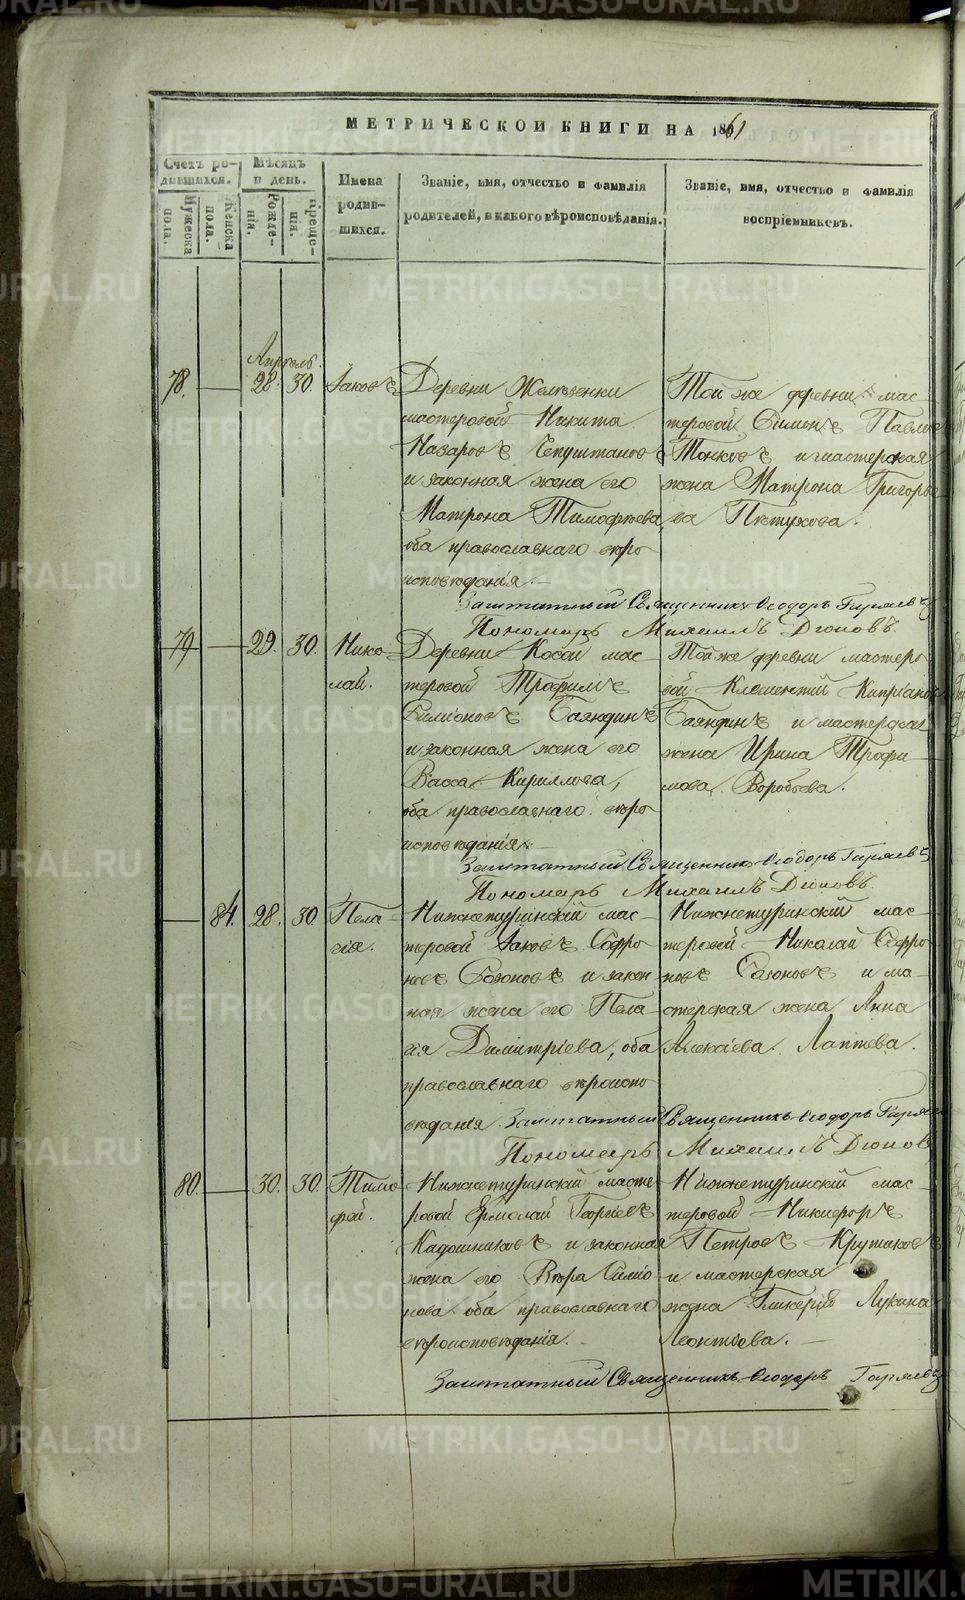 МЕТРИЧЕСКОЙ КНИГИ НА 1861
Счетъ ро-
дившихся.
Мужеска
пола.
Женска
пола.
Мѣсяцъ
и день.
Рожде-
нія.
Креще-
нія.
Имена
родив-
шихся.
Званіе, имя, отчество и фамилія
родителей, и какого вѣроисповѣданія.
Званіе, имя, отчество и фамилія
воспріемниковъ.
Апрѣль.
78. — 28. 30. Іаковъ
Деревни
мастеровой Никита
Назаровъ Чепуштановъ
и законная жена его
Матрона Тимофѣева,
оба православнаго вѣро
исповѣданія. —
Той же деревни мас—
теровой Симонъ Павловъ
Тонковъ и мастерская
жена Матрона Григорье
ва Пѣтухова.
Заштатный Священникъ Ѳеодоръ Гаряевъ
Пономарь Михаилъ Дюповъ.
79 — 29. 30. Нико
лай.
Деревни Косой мас—
теровой Трофимъ
Симіоновъ Баяндинъ
и законная жена его
Васса Кириллова,
оба православнаго вѣро
исповѣданія.
Той же деревни мастеро
вой Климентій Кипріановъ
Баяндинъ и мастерская
жена Ирина Трофи
мова Воробьева.
Заштатный Священникъ Ѳеодоръ Гаряевъ
Пономарь Михаилъ Дюповъ.
— 84. 28. 30 Пела—
гія.
Нижнетуринскій мас—
теровой Іаковъ Софро
новъ Сазоновъ и закон
ная жена его Пела
гія Димитріева, оба
православнаго вѣроиспо
вѣданія
Нижнетуринскій мас—
теровой Николай Софро
новъ Сазоновъ и ма—
стерская жена Анна
Алексіева Лаптева.
Заштатный Священникъ Ѳеодоръ Гаряев
Пономарь Михаилъ Дюпов
80. — 30. 30. Тимо
фей.
Нижнетуринскій масте
ровой Ермолай Георгіевъ
Кадошниковъ и законная
жена его Вѣра Симіо
нова оба православнаго
вѣроисповѣданія. —
Нижнетуринскій мас—
теровой Никифоръ
Петровъ Крутиковъ
и мастерская
жена Гликерія Лукина
Леонтіева. —
Заштатный Священникъ Ѳеодоръ Гаряевъ
METRIKI.GASO-URAL.RU